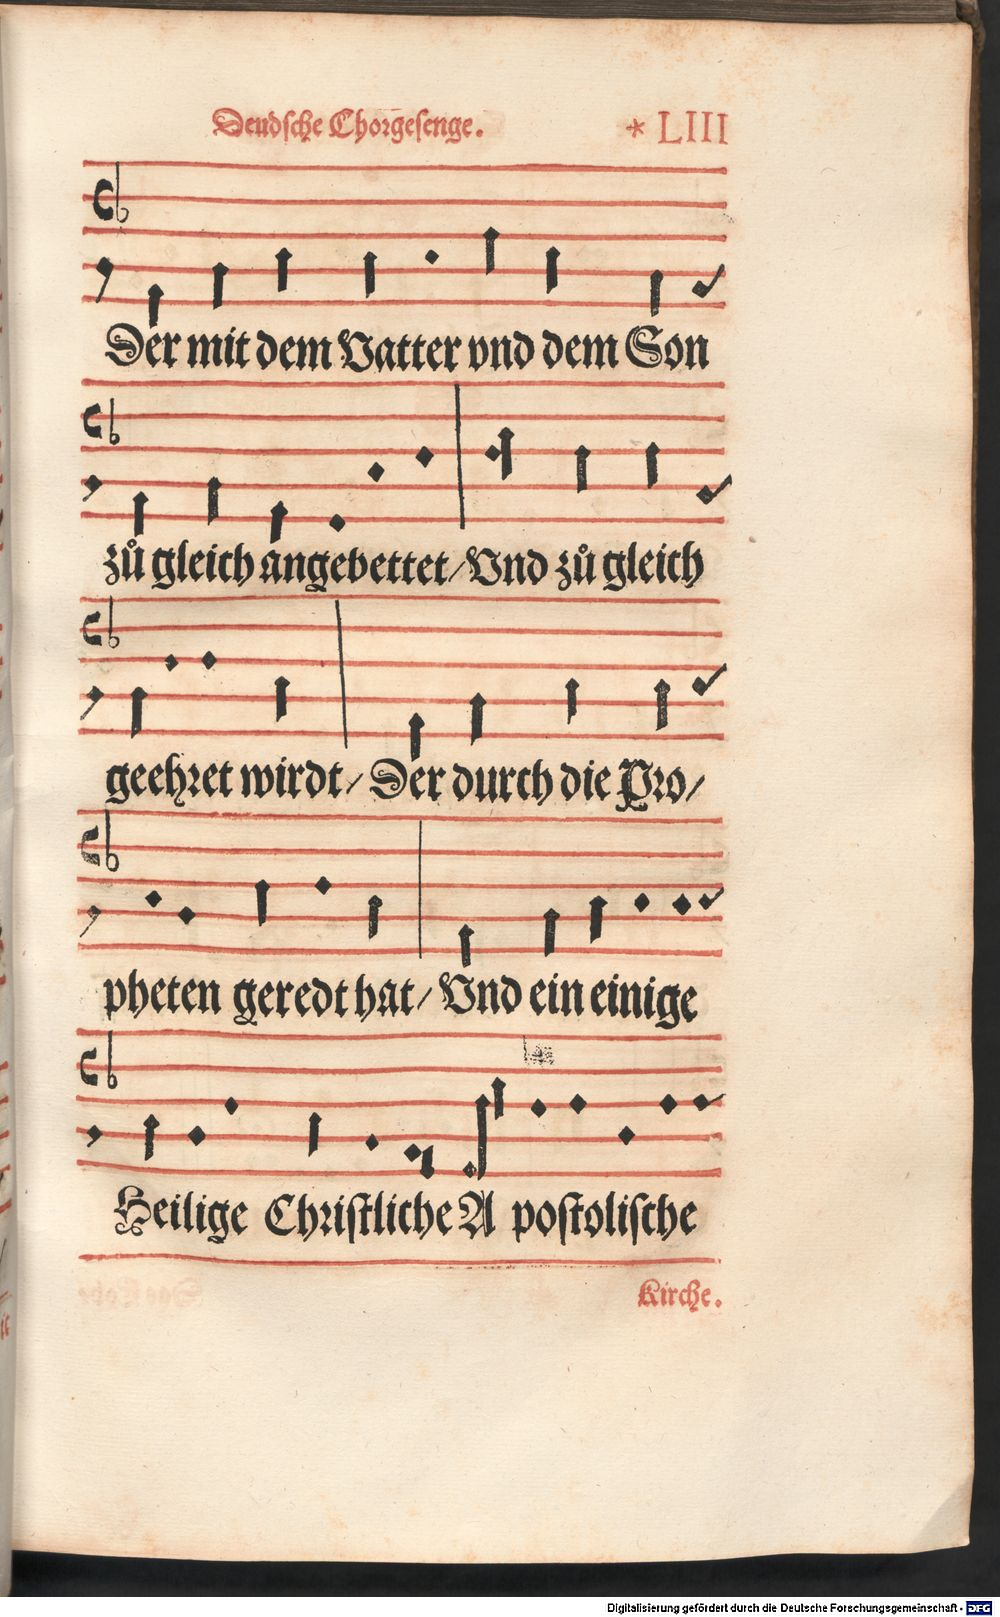 Deudsche Chorgesenge. * LIII
Der mit dem Vatter vnd dem Son
zů gleich angebettet/ Vnd zů gleich
geehret wirdt/ Der durch die Pro/
pheten geredt hat/ Vnd ein einige
Heilige Christliche A postolische
Kirche.
Digitalisierung gefördert durch die Deutsche Forschungsgemeinschaft - DFG